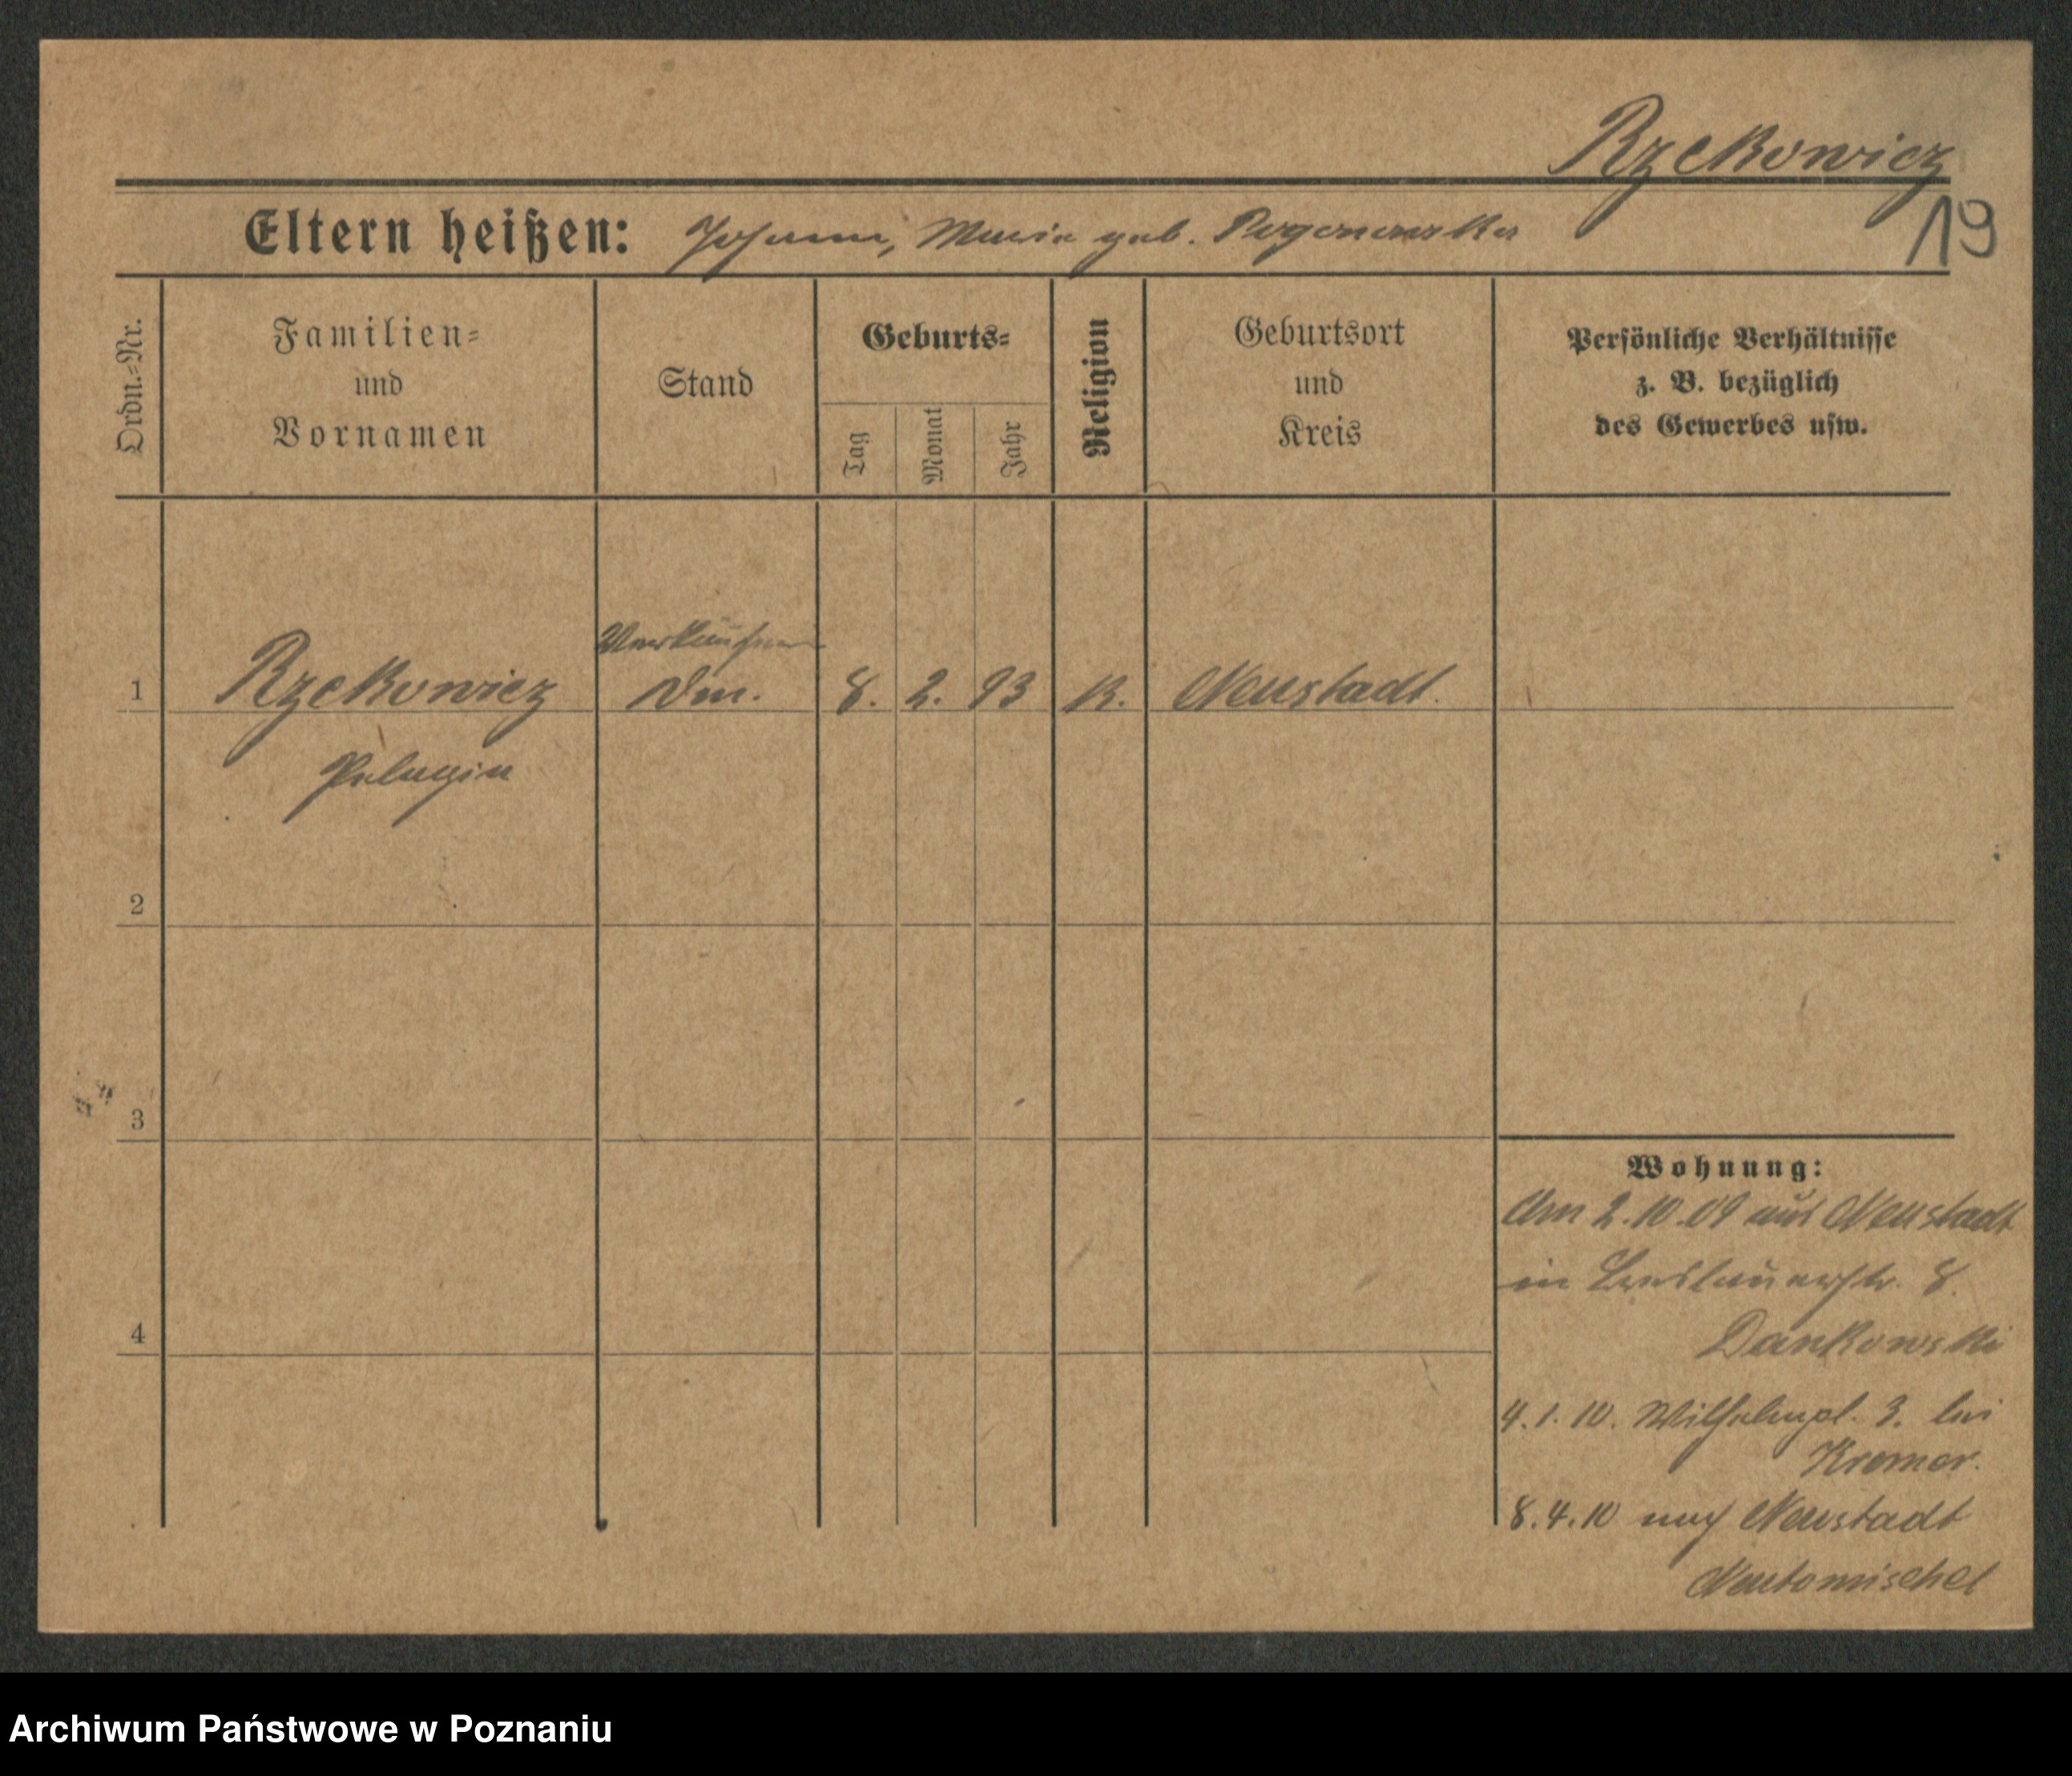 Rzekowicz
19
Eltern heißen: Johann, Maria geb.
Ordn.=Nr.
Familien=
und
Vornamen
Stand
Geburts=
Tag
Monat
Jahr
Religion
Geburtsort
und
Kreis
Persönliche Verhältnisse
z. B. bezüglich
des Gewerbes usw.
Verkäuferin
1 Rzekowicz 8. 2. 93 K. Neustadt.
Pelagia
2
3
4
Wohnung:
Am 2.10.09 aus Neustadt
in Breslauerstr. 8.
Dankowski
4.1.10. Wilhelmpl. 3. bei
Kromer.
8.4.10 nach Neustadt
Neutomischel
Archiwum Państwowe w Poznaniu